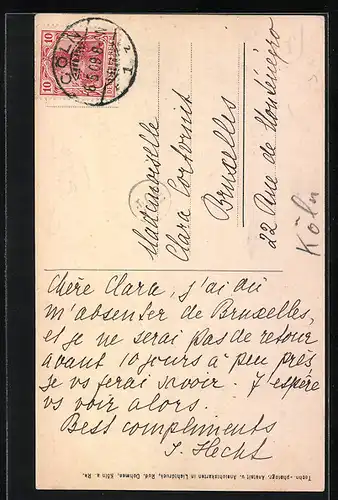 Chère Clara, j'ai dû
m'absenter de Bruxelles,
et je ne serai pas de retour
avant 10 jours à peu près
Je vs ferai savoir. J'espère
vs voir alors.
Best compliments
J. Hecht
Mademoiselle
Clara
Bruxelles
22 Rue de Monténégro
Köln
CÖLN
6.5.09.8-
1
10
10
Techn.-photogr. Anstalt u. Ansichtskarten in Lichtdruck, Rud. Oehmen, Köln a. Rh.